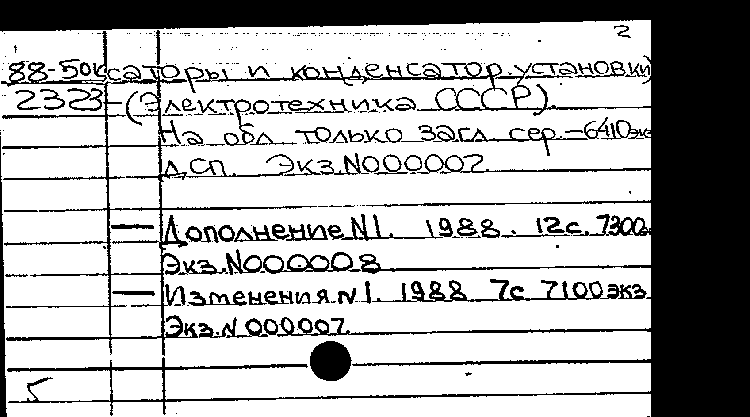 2
88-50к саторы и конденсатор.установки)
2323 -(Электротехника СССР).
На обл. только загл. сер.-6410экз
ДСП. Экз.N000007.
— Дополнение N1. 1988. 12с. 7300э.
Экз.N000008
— Изменения N1. 1988 7с 7100экз
Экз.N 000007.
5